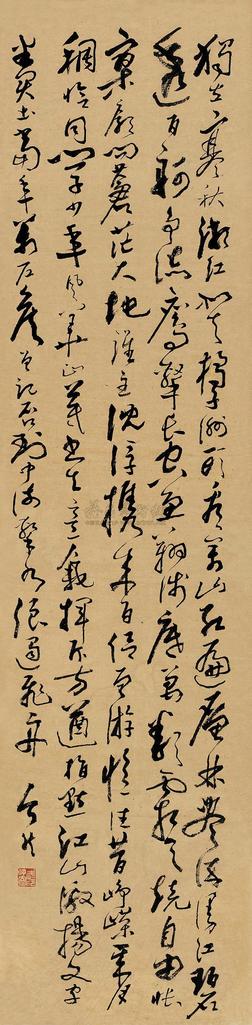 獨立寒秋湘江北去橘子洲頭看萬山紅遍層林盡染漫江碧
透百舸爭流鷹擊長空魚翔淺底萬類霜天競自由悵
寥廓問蒼茫大地誰主沉浮攜來百侶曾游憶往昔崢嶸歲月
稠恰同學少年風華正茂書生意氣揮斥方遒指點江山激揚文字
糞土當年萬戶侯曾記否到中流擊水浪遏飛舟